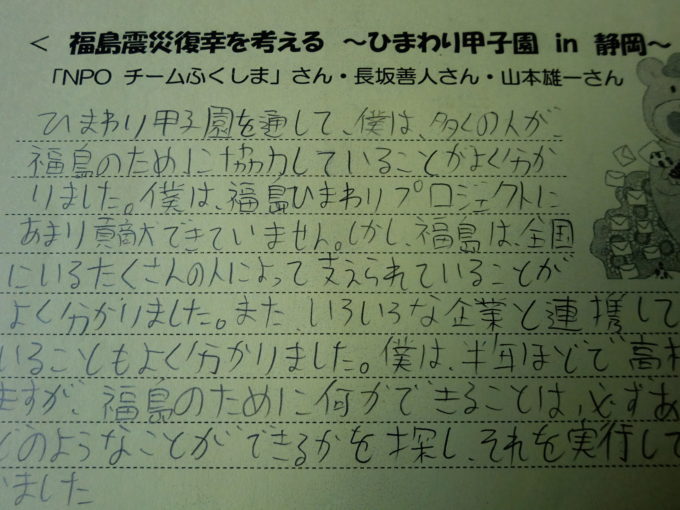 < 福島震災復幸を考える ～ひまわり甲子園 in 静岡～
「NPO チームふくしま」さん・長坂善人さん・山本雄一さん
ひまわり甲子園を通して、僕は、多くの人が、
福島のために協力していることがよく分か
りました。僕は、福島ひまわりプロジェクトに
あまり貢献できていません。しかし、福島は、全国
にいるたくさんの人によって支えられていることが
よく分かりました。また、いろいろな企業と連携して
いることもよく分かりました。僕は、半年ほどで高校
ますが、福島のために何かできることは、必ずあ
どのようなことができるかを探し、それを実行して
いました